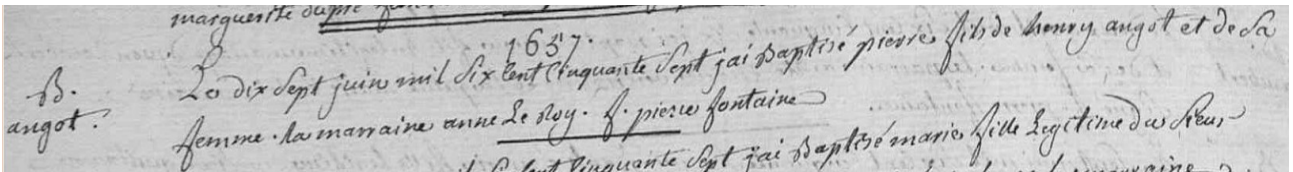 marguerite dupré
1657.
B. Le dix Sept juin mil Six Cent Cinquante Sept jai Baptisé pierre fils de henry angot et de Sa
angot. femme. la marraine anne Le Roy. f. pierre fontaine
Cent Cinquante Sept jai Baptisé marie fille Legitime du Sieur
marraine